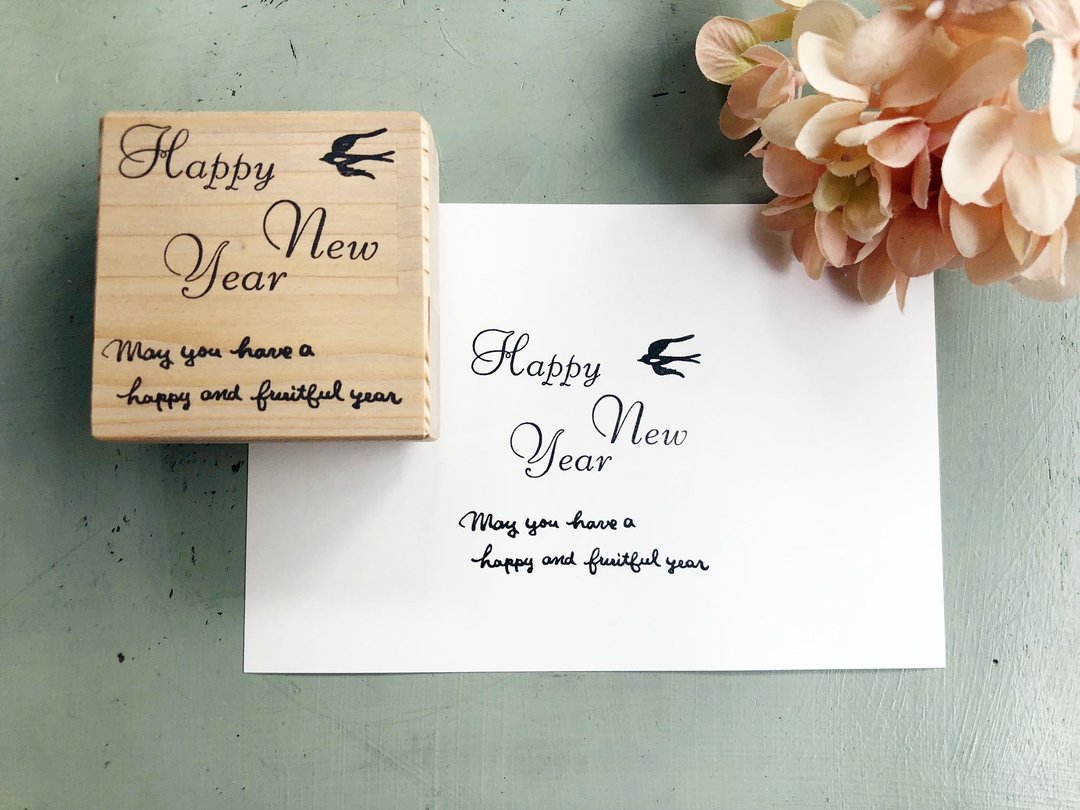 Happy
New
Year
May you have a
happy and fruitful year
Happy
New
Year
May you have a
happy and fruitful year